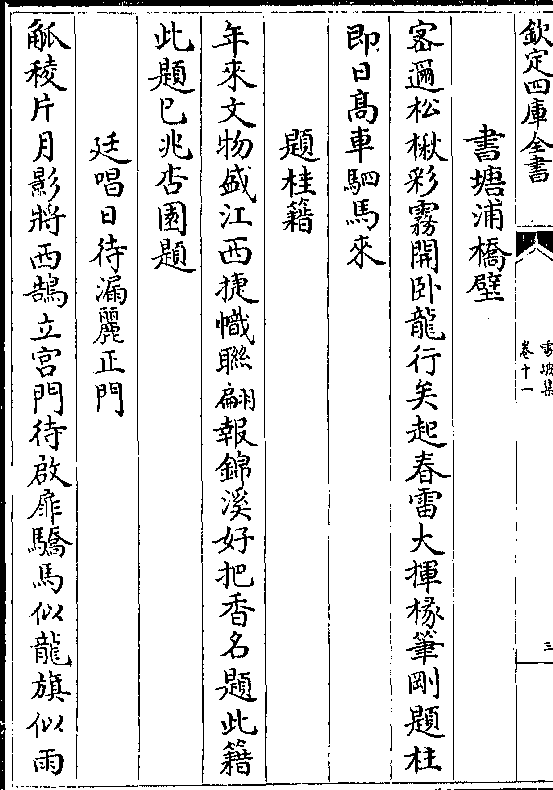 欽定四庫全書
雪坡集
卷十一
三
書塘浦橋壁
密邇松楸彩霧開卧龍行矣起春雷大揮椽筆剛題柱
即日髙車駟馬來
題桂籍
年來文物盛江西捷幟聯翩報錦溪好把香名題此籍
此題已兆杏園題
廷唱日待漏麗正門
觚稜片月影將西鵠立宮門待啟扉驕馬似龍旗似雨